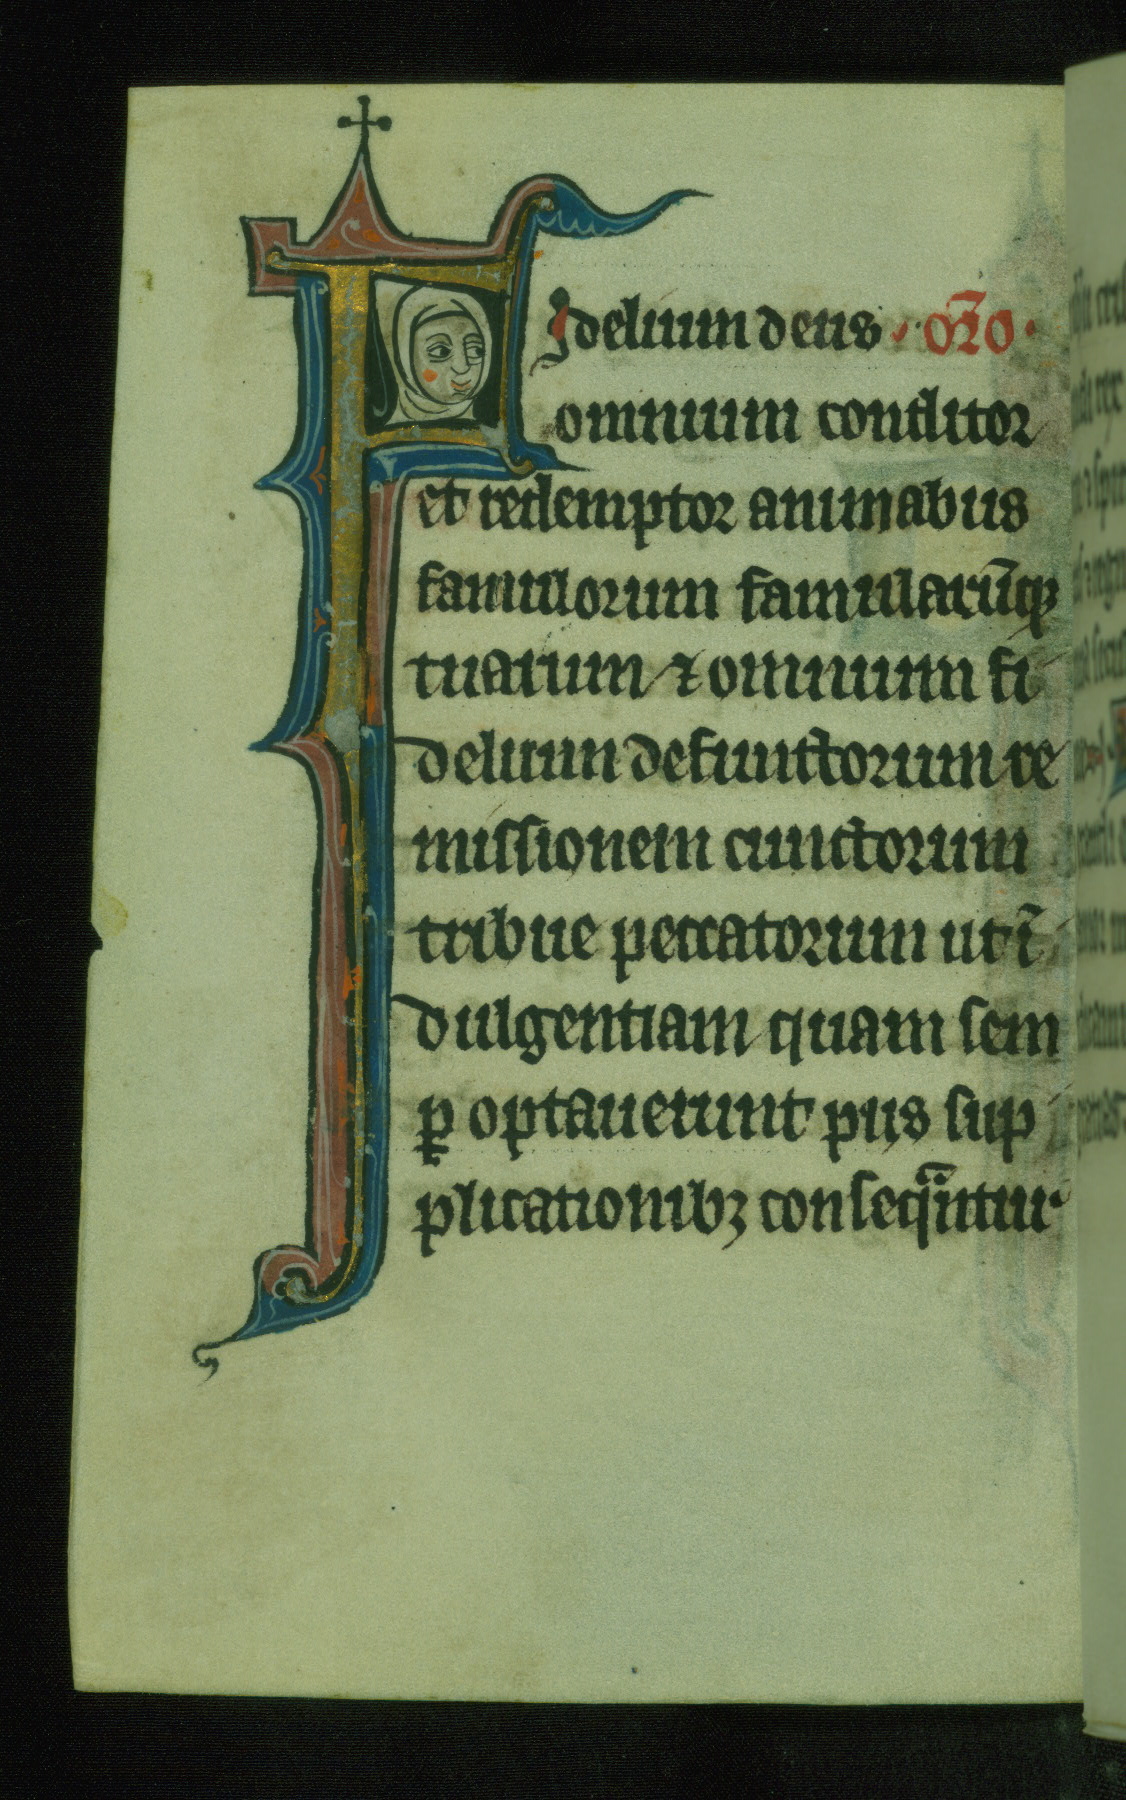 Fidelium deus · or̄o ·
omnium conditor
et redemptor animabus
famulorum famularūqꝫ
tuarum ⁊ omnium fi
delium defunctorum re
missionem cunctorum
tribue peccatorum ut ī
dulgentiam quam sem
ꝑ optauerunt piis sup
plicationibꝫ consequātur